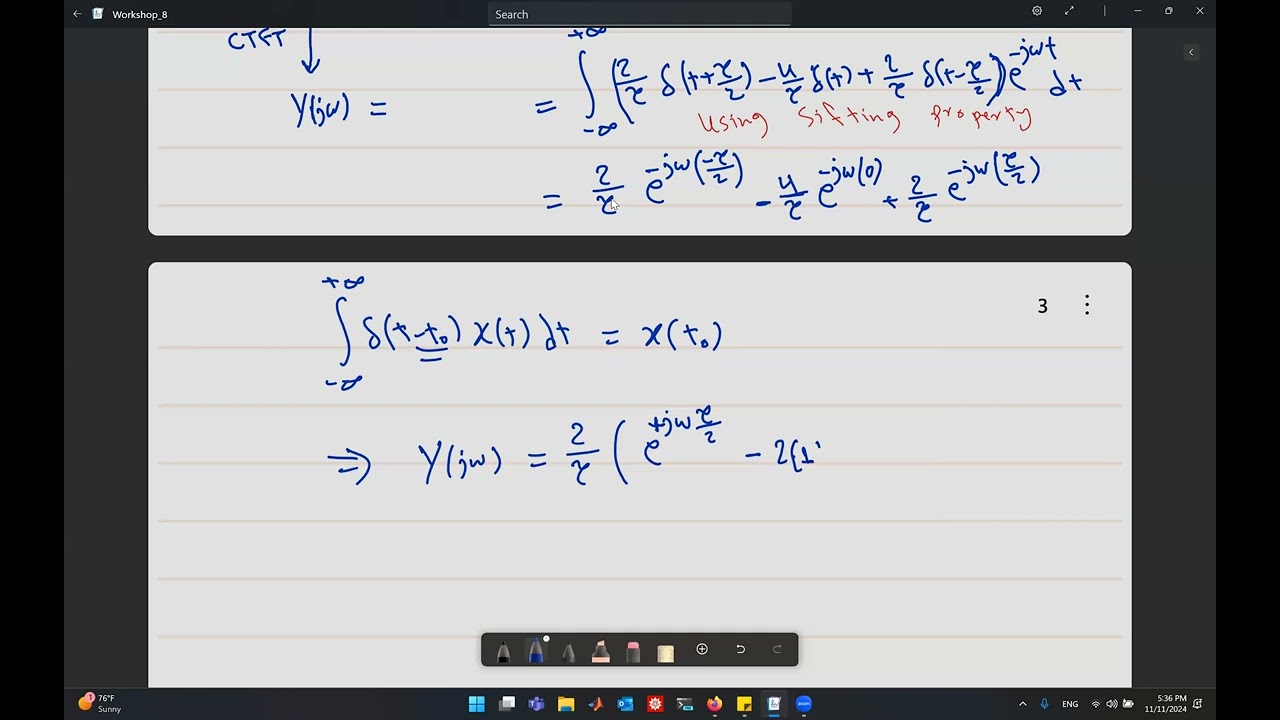 Workshop_8
Search
CTFT
Y(jω) = = ∫_{-∞}^{+∞} (2/τ δ(t+τ/2) - 4/τ δ(t) + 2/τ δ(t-τ/2)) e^{-jωt} dt
Using Sifting Property
= 2/τ e^{-jω(-τ/2)} - 4/τ e^{-jω(0)} + 2/τ e^{-jω(τ/2)}
3
∫_{-∞}^{+∞} δ(t-t₀) x(t) dt = x(t₀)
⇒ Y(jω) = 2/τ ( e^{+jω τ/2} - 2(1
1
76°F
Sunny
ENG
5:36 PM
11/11/2024